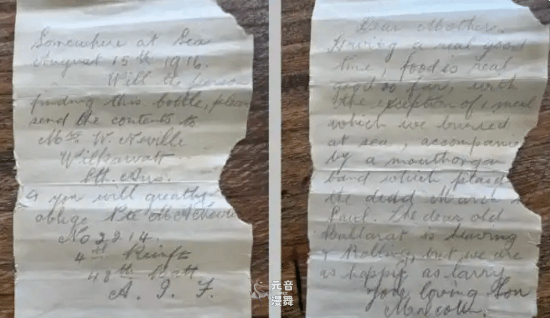 Somewhere at Sea
August 15th 1916.
Will the person
finding this bottle, please
send the contents to
Mrs W. Neville
Wilkawatt
Sth. Aus.
& you will greatly
oblige Pte M A Neville
No 3214.
4th Reinf
48th Batt
A. I. F.
Dear Mother,
Having a real good
time, food is real
good so far, with
the exception of 1 meal
which we buried
at sea, accompanied
by a mouthorgan
band which played
the dead March in
Saul. The dear old
Ballarat is heaving
& Rolling, but we are
as happy as Larry
Your loving Son
Malcolm.
元音
漫舞